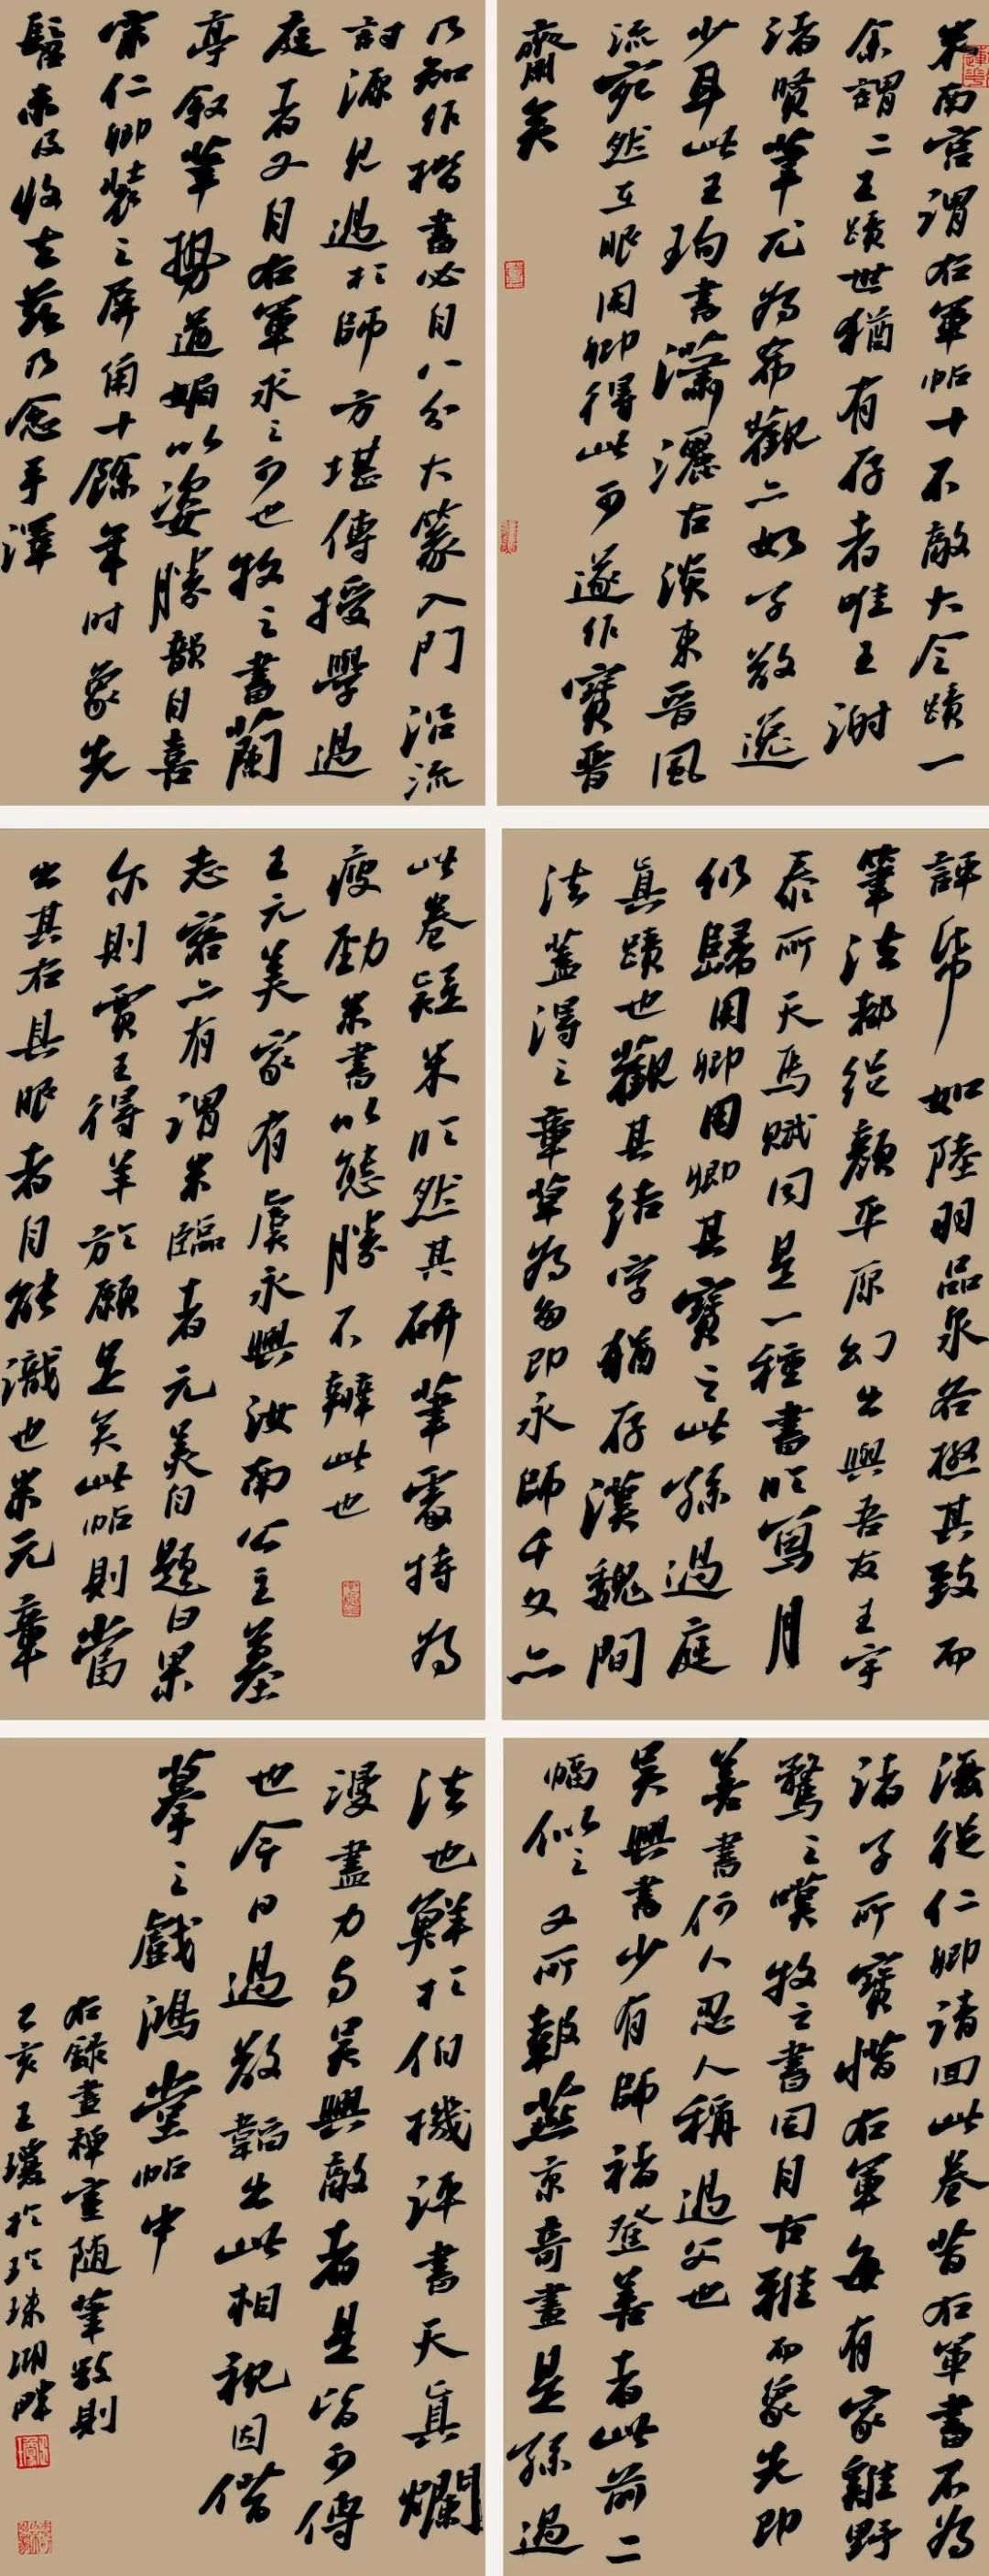 米南宫謂右軍帖十不敵大令蹟一
余謂二王蹟世猶有存者唯王謝
諸賢筆尤為希觀亦如子敬逸
少耳此王珣書瀟灑古淡東晉風
流宛然在眼用卿得此可遂作寶晉
齋矣
乃知作楷書必自八分大篆入門沿流
討源見過於師方堪傳授學過
庭者又自右軍求之可也牧之書蘭
亭叙筆勢遒媚以姿勝韻自喜
宗仁卿裝之屏角十餘年时象先
髫未及收去兹乃念手澤
評帋如陸羽品泉各極其致而
筆法都從顏平原幻出與吾友王宇
泰所天馬賦同是一種書順寫月
仍歸用卿用卿其寶之此孫過庭
真蹟也觀其結字猶存漢魏間
法蓋得之章草為多即永師千文亦
此卷疑米順然其研筆處特為
瘦勁米書以態勝不辨此也
王元美家有虞永興汝南公主墓
志容亦有謂米臨者元美自題曰果
尔則買王得羊於願足矣此帖則當
出其右具眼者自能識也米元章
復從仁卿請回此卷昔右軍書不為
諸子所寶惜右軍每有家雞野
鶩之嘆牧之書因自古雅而象先即
善書何人忍人稱過父也
吳興書少有師褚登善者此前二
幅似之又所報燕京奇畫是孫過
法也鮮於伯機评書天真爛
漫盡力与吳興敵者是皆可傳
也今日過敬韜出此相視因借
摹之戲鴻堂帖中
右錄畫禪室随筆數則
乙亥王瓊於珍珠湖畔